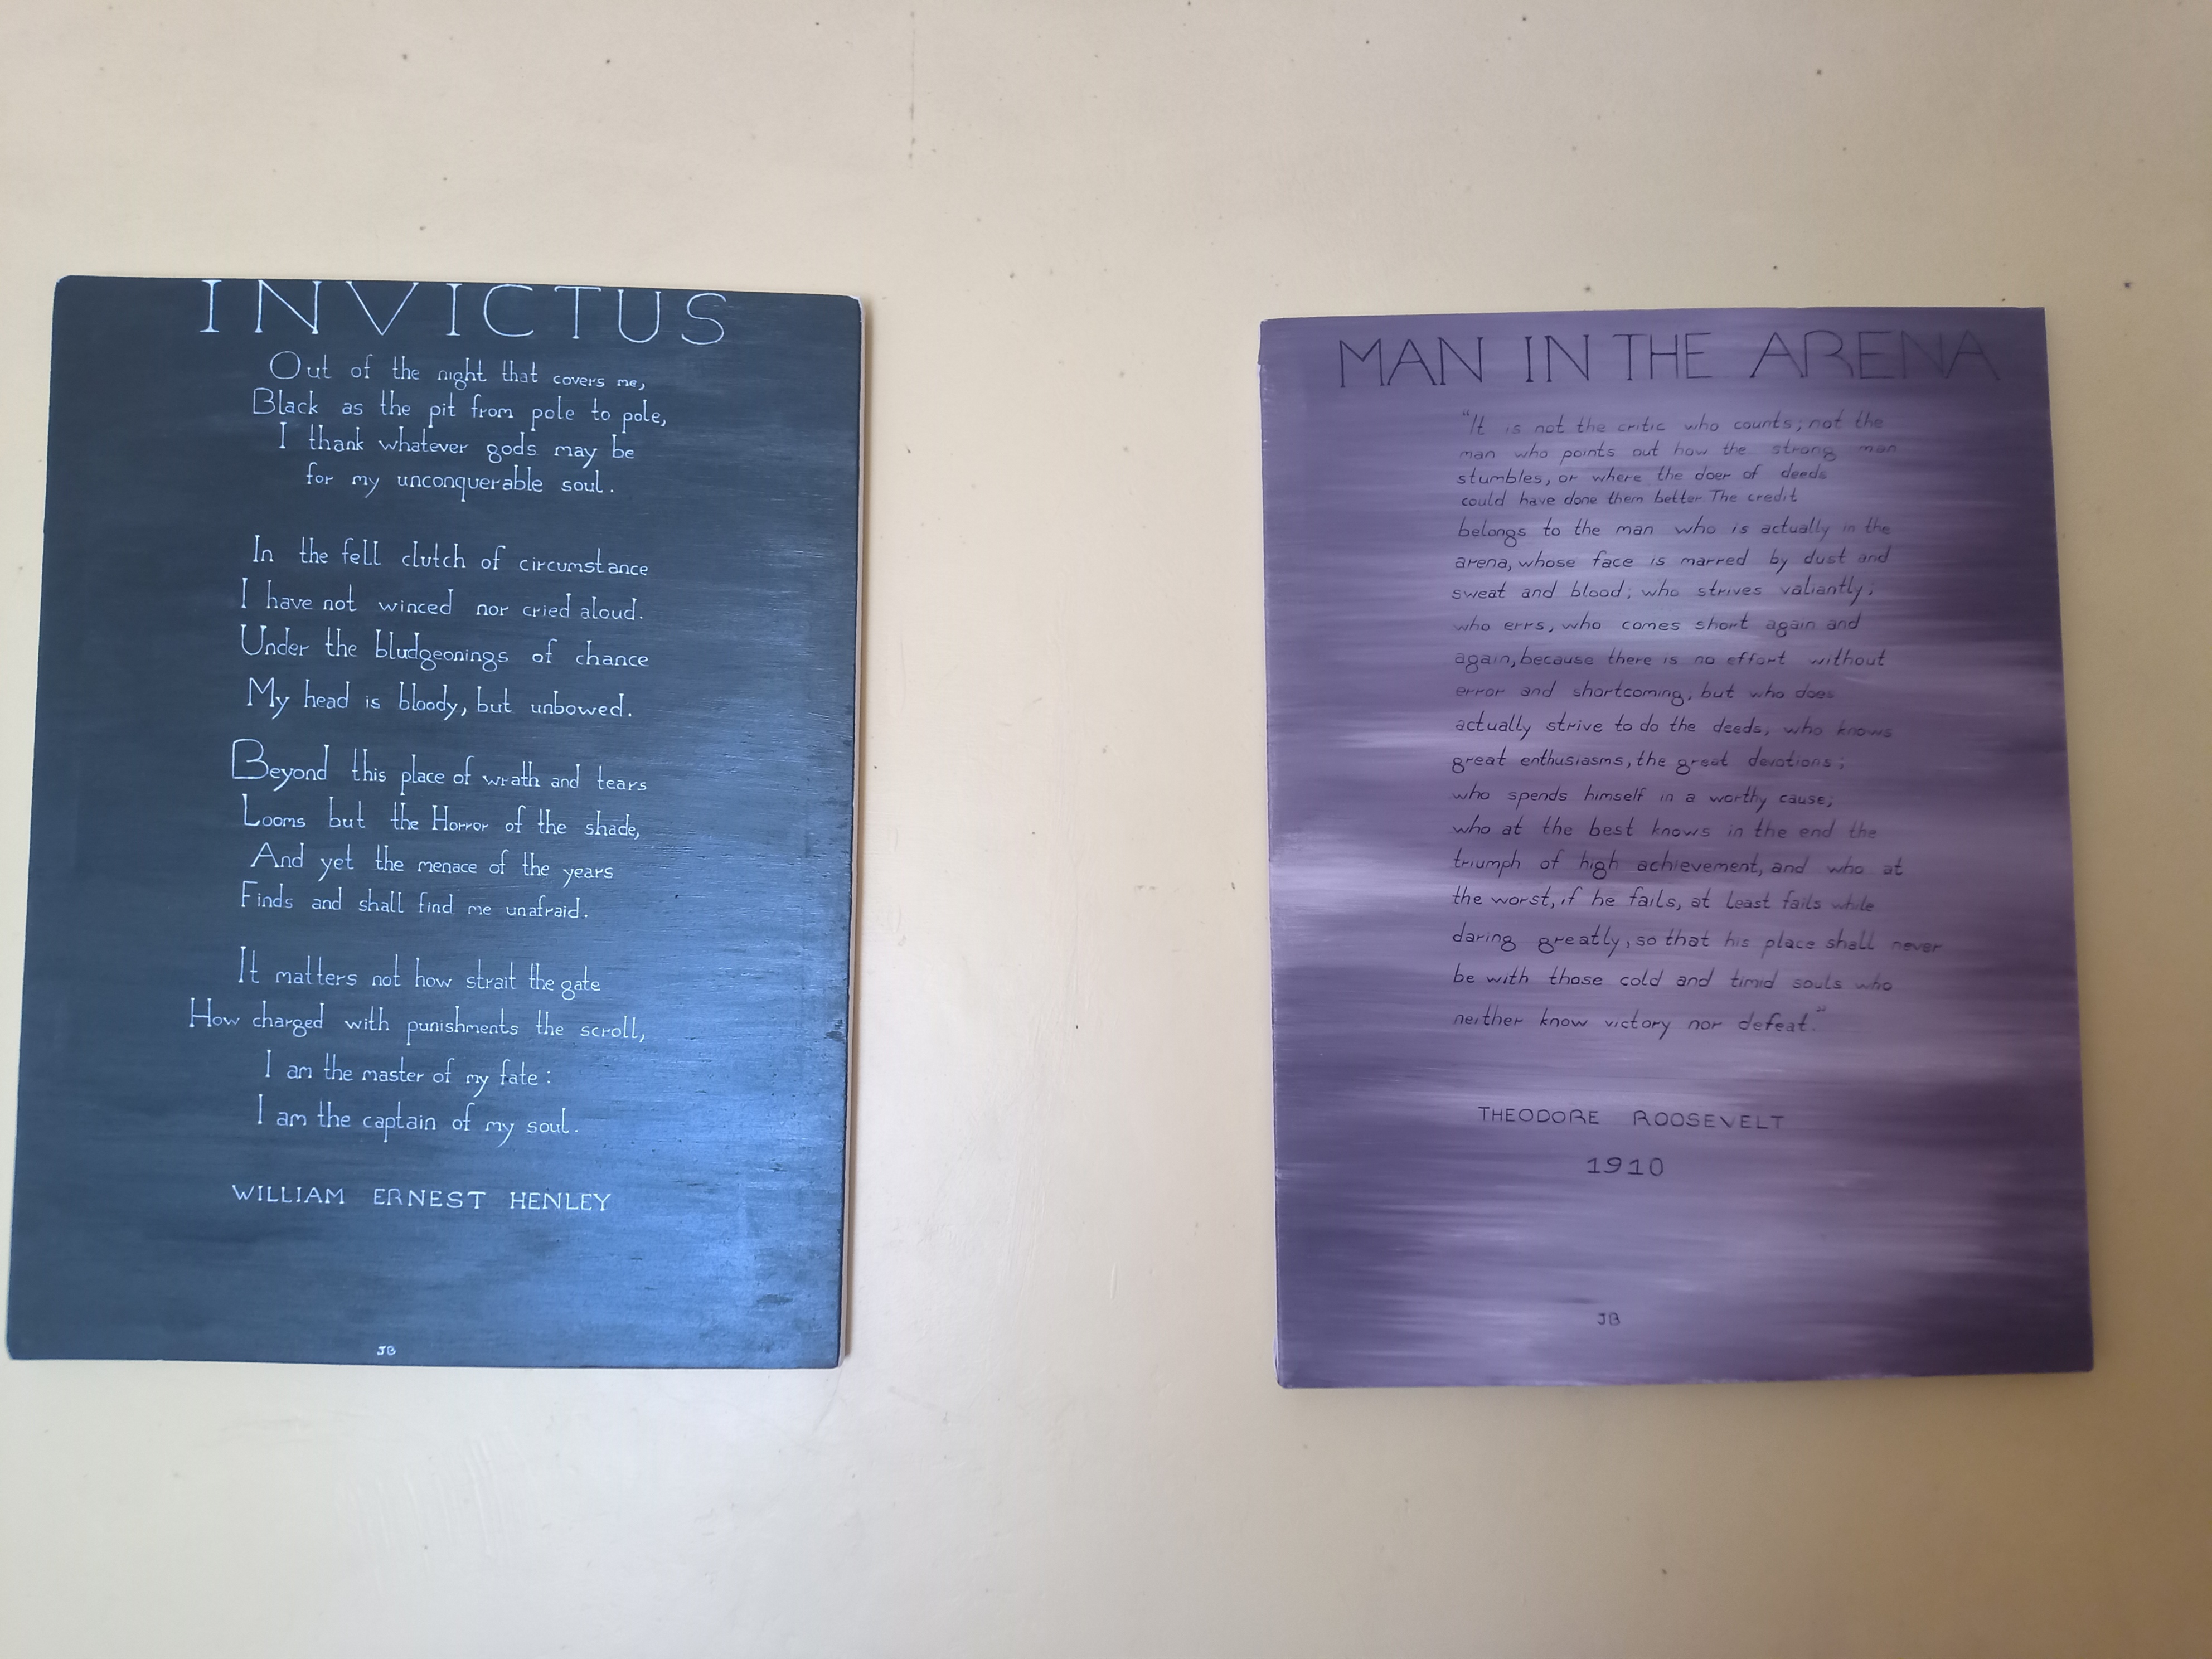 INVICTUS
Out of the night that covers me,
Black as the pit from pole to pole,
I thank whatever gods may be
for my unconquerable soul.
In the fell clutch of circumstance
I have not winced nor cried aloud.
Under the bludgeonings of chance
My head is bloody, but unbowed.
Beyond this place of wrath and tears
Looms but the Horror of the shade,
And yet the menace of the years
Finds and shall find me unafraid.
It matters not how strait the gate
How charged with punishments the scroll,
I am the master of my fate:
I am the captain of my soul.
WILLIAM ERNEST HENLEY
JB
MAN IN THE ARENA
"It is not the critic who counts; not the
man who points out how the strong man
stumbles, or where the doer of deeds
could have done them better. The credit
belongs to the man who is actually in the
arena, whose face is marred by dust and
sweat and blood; who strives valiantly;
who errs, who comes short again and
again, because there is no effort without
error and shortcoming; but who does
actually strive to do the deeds; who knows
great enthusiasms, the great devotions;
who spends himself in a worthy cause;
who at the best knows in the end the
triumph of high achievement, and who at
the worst, if he fails, at least fails while
daring greatly, so that his place shall never
be with those cold and timid souls who
neither know victory nor defeat."
THEODORE ROOSEVELT
1910
JB